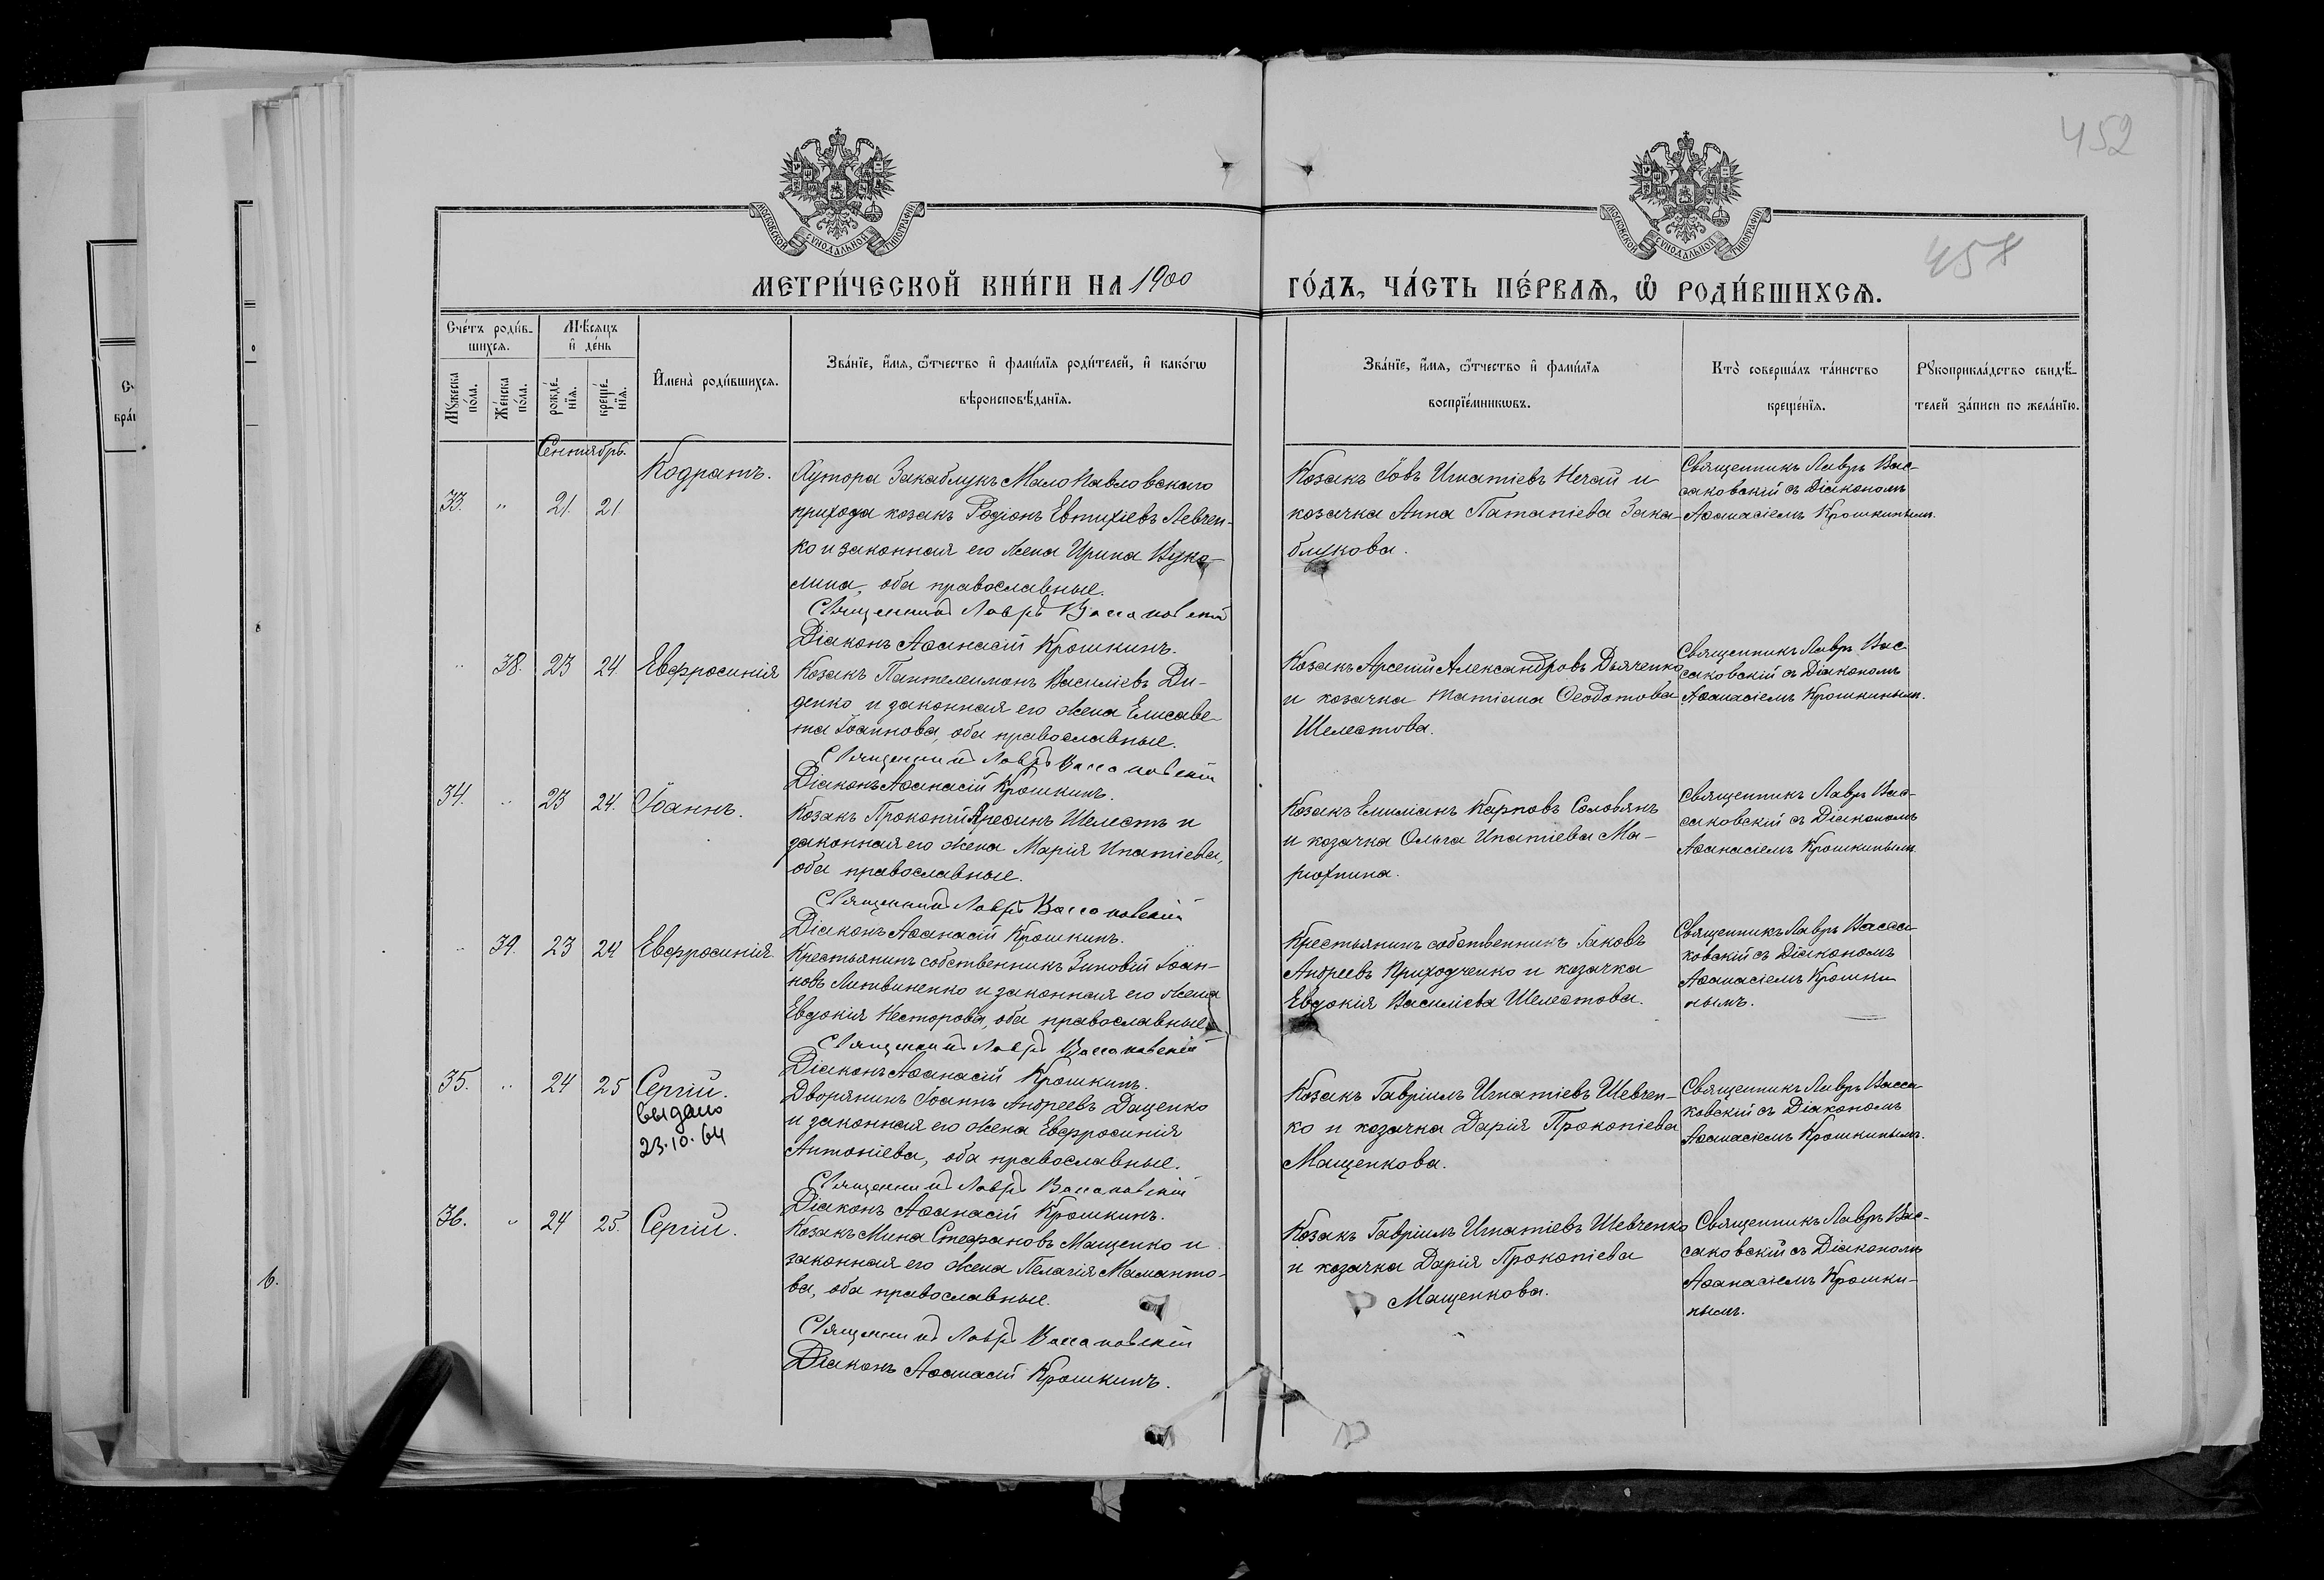 452
458
МОСКОВСКОЙ СѴНОДАЛЬНОЙ ТИПОГРАФІИ
МОСКОВСКОЙ СѴНОДАЛЬНОЙ ТИПОГРАФІИ
МЕТРИ́ЧЕСКОЙ КНИ́ГИ НА 1900
ГО́ДЪ, ЧА́СТЬ ПЕ́РВАѦ, Ѡ҆ РОДИ́ВШИХСѦ.
Сче́тъ роди́в-
шихсѧ.
Мѣ́сѧцъ
и҆ де́нь
Мꙋ́жеска
по́ла.
Же́нска
по́ла.
рожде́-
нїѧ.
креще́-
нїѧ.
И҆мена̀ роди́вшихсѧ.
Зва́нїе, и҆́мѧ, ѻ҆́тчество и҆ фами́лїѧ роди́телей, и҆ како́гѡ
вѣроисповѣ́данїѧ.
Зва́нїе, и҆́мѧ, ѻ҆́тчество и҆ фами́лїѧ
воспрїе́мникѡвъ.
Кто̀ соверша́лъ та́инство
креще́нїѧ.
Рꙋкоприкла́дство свидѣ́-
телей за́писи по жела́нїю.
Сентябрь.
33. " 21. 21
Кодратъ.
Хутора Закаблукъ Мало Павловскаго
прихода козакъ Родіонъ Евтихіевъ Левчен-
ко и законная его жена Ирина Вуко-
лина, оба православные.
Священникъ Лавръ Вассаковскій
Діаконъ Аѳанасій Крошкинъ.
Козакъ Іовъ Игнатіевъ Нечай и
козачка Анна Патапіева Зака-
блукова.
Священникъ Лавръ Вас-
саковскій съ Діакономъ
Аѳанасіемъ Крошкинымъ.
" 38. 23 24.
Евфросинія
Козакъ Пантелеимонъ Василіевъ Ди-
денко и законная его жена Елисаве-
та Іоаннова, оба православные.
Священникъ Лавръ Вассаковскій
Діаконъ Аѳанасій Крошкинъ.
Козакъ Арсеній Александровъ Дьяченко
и козачка Татіана Ѳеодотова
Шелестова.
Священникъ Лавръ Вас-
саковскій съ Діакономъ
Аѳанасіемъ Крошкинымъ.
34. " 23 24.
Іоаннъ.
Козакъ Прокопій Шелестъ и
законная его жена Марія Ипатіева,
оба православные.
Священникъ Лавръ Вассаковскій
Діаконъ Аѳанасій Крошкинъ.
Козакъ Емиліанъ Карповъ Соловянъ
и козачка Ольга Ипатіева Ма-
рюхнина.
Священникъ Лавръ Вас-
саковскій съ Діакономъ
Аѳанасіемъ Крошкинымъ.
" 39. 23 24
Евфросинія.
Крестьянинъ собственникъ Зиновій Іоан-
новъ Литвиненко и законная его жена
Евдокія Несторова, оба православные.
Священникъ Лавръ Вассаковскій
Діаконъ Аѳанасій Крошкинъ.
Крестьянинъ собственникъ Іаковъ
Андреевъ Приходченко и козачка
Евдокія Василіева Шелестова.
Священникъ Лавръ Васса-
ковскій съ Діакономъ
Аѳанасіемъ Крошки
нымъ.
35. " 24 25
Сергій.
выдано
23.10.64
Дворянинъ Іоаннъ Андреевъ Даценко
и законная его жена Евфросинія
Антоніева, оба православные.
Священникъ Лавръ Вассаковскій
Діаконъ Аѳанасій Крошкинъ.
Козакъ Гавріилъ Игнатіевъ Шевчен-
ко и козачка Дарія Прокопіева
Мащенкова.
Священникъ Лавръ Васса-
ковскій съ Діакономъ
Аѳанасіемъ Крошкинымъ.
36. " 24 25.
Сергій.
Козакъ Мина Стефановъ Мащенко и
законная его жена Пелагія Маманто-
ва, оба православные.
Священникъ Лавръ Вассаковскій
Діаконъ Аѳанасій Крошкинъ.
Козакъ Гавріилъ Игнатіевъ Шевченко
и козачка Дарія Прокопіева
Мащенкова.
Священникъ Лавръ Вас-
саковскій съ Діакономъ
Аѳанасіемъ Крошки-
нымъ.